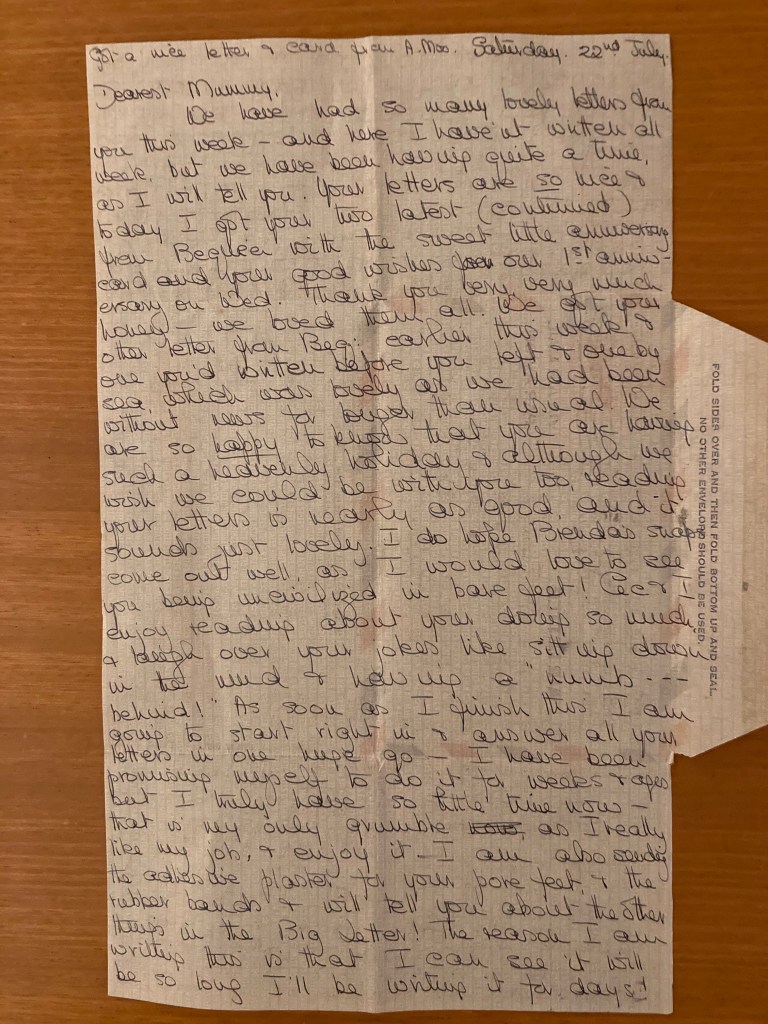 Got a nice letter & card from A. Moo. Saturday. 22nd July.
Dearest Mummy,
We have had so many lovely letters from
you this week – and here I have'nt written all
week, but we have been having quite a time,
as I will tell you. Your letters are so nice &
today I got your two latest (continued)
from with the sweet little anniversary
card and your good wishes for our 1st anniv-
ersary on Wed. Thank you very, very much
honey – we loved them all. We got your
other letter from earlier this week &
one you'd written before you left & one by
sea, which was lovely as we had been
without news for longer than usual. We
are so happy to know that you are having
such a heavenly holiday & although we
wish we could be with you too, reading
your letters is nearly as good, and it
sounds just lovely. I do hope Brenda's snaps
come out well, as I would love to see
you being uncivilized in bare feet! Cec & I
enjoy reading about your doings so much,
& laugh over your jokes like sitting down
in the mud & having a "numb ---
behind!" As soon as I finish this I am
going to start right in & answer all your
letters in one huge go – I have been
promising myself to do it for weeks & ages
but I truly have so little time now –
that is my only grumble as I really
like my job, & enjoy it – I am also sending
the adhesive plaster for your pore feet, & the
rubber bands & will tell you about the other
things in the Big Letter! The reason I am
writing this is that I can see it will
be so long I'll be writing it for days!
FOLD SIDES OVER AND THEN FOLD BOTTOM UP AND SEAL.
NO OTHER ENVELOPE SHOULD BE USED.